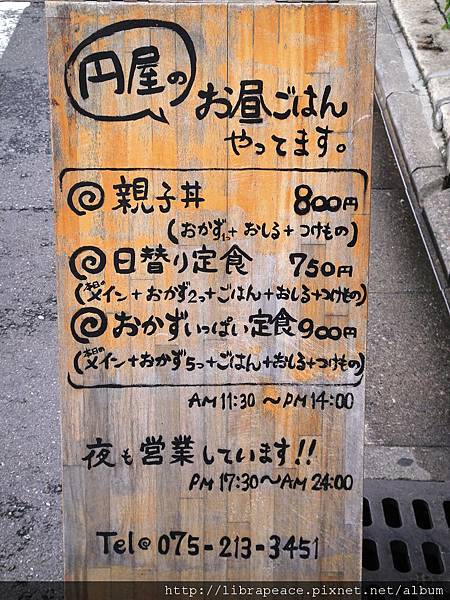 円屋の
お昼ごはん
やってます。
親子丼 800円
(おかず1つ+おしる+つけもの)
日替り定食 750円
(本日のメイン+おかず2つ+ごはん+おしる+つけもの)
おかずいっぱい定食 900円
(本日のメイン+おかず5つ+ごはん+おしる+つけもの)
AM 11:30 〜 PM 14:00
夜も営業しています!!
PM 17:30〜AM 24:00
Tel@ 075-213-3451
http://librapeace.pixnet.net/album